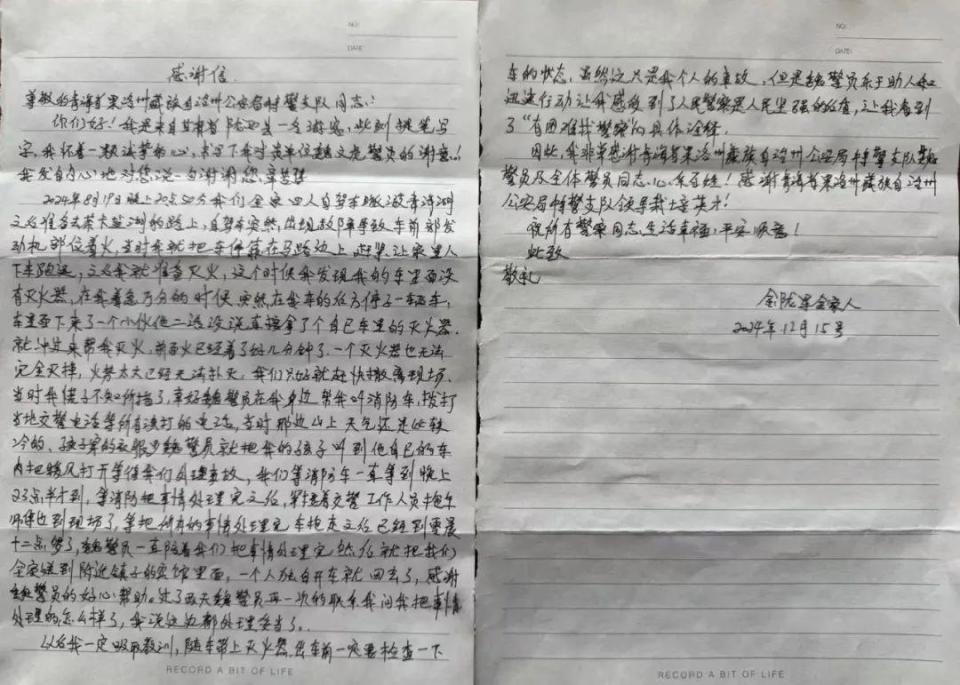 NO:
DATE:
感谢信
尊敬的青海省果洛州藏族自治州公安局特警支队同志:
你们好!我是来自甘肃省陇西县一名游客,此刻提笔写
字,我怀着一颗诚挚的心,书写下我对贵单位魏文虎警员的谢意!
我发自内心地对您说一句谢谢您,辛苦啦
2024年8月19日晚上20点50分我们全家四人自驾车激波青海湖
之后准备去茶卡盐湖的路上,自驾车突然出现故障导致车前部发
动机部位着火,当时车就把车停靠在马路边上,赶紧让家里人
下车跑远,之后我就准备灭火,这个时候我发现我的车里面没
有灭火器,在我着急万分的时候,突然在我车的后方停了一辆车,
车里面下来了一个小伙他二话没说直接拿了个自己车里的灭火器
就冲过来帮我灭火,前面火已经着了好几分钟了,一个灭火器也无法
完全灭掉,火势太大已经无法扑灭,我们只好就赶快撤离现场,
当时我傻子不知所措了,幸好魏警员在我身边帮我叫消防车,拨打
当地交警电话等所有该打的电话,当时那边山上天气还是比较
冷的,孩子穿的衣服少魏警员就把我的孩子叫到他自己的车
内把暖风打开等待我们处理事故,我们等消防车一直等到晚上
23点半才到,等消防把事情处理完之后,紧接着交警工作人员拖车
师傅也到现场了,等把所有的事情处理完车拖走之后已经到零晨
十二点多了,魏警员一直陪着我们把事情处理完然后就把我们
全家送到附近镇子的宾馆里面,一个人独自开车就回去了,感谢
魏警员的好心帮助。过了两天魏警员再一次的联系我问我把事情
处理的怎么样了,我说这边都处理妥当了。
以后我一定吸取教训,随车带上灭火器,出车前一定要检查一下
RECORD A BIT OF LIFE
NO:
DATE:
车的状态,虽然这只是我个人的事故,但是魏警员乐于助人和
迅速行动让我感受到了人民警察是人民坚强的后盾,让我看到
了“有困难找警察”的具体诠释。
因此,我非常感谢青海省果洛州藏族自治州公安局特警支队魏
警员及全体警员同志,心系百姓!感谢青海省果洛州藏族自治州
公安局特警支队领导栽培英才!
祝所有警察同志,生活幸福,平安顺意!
此致
敬礼
金陇军全家人
2024年12月15号
RECORD A BIT OF LIFE